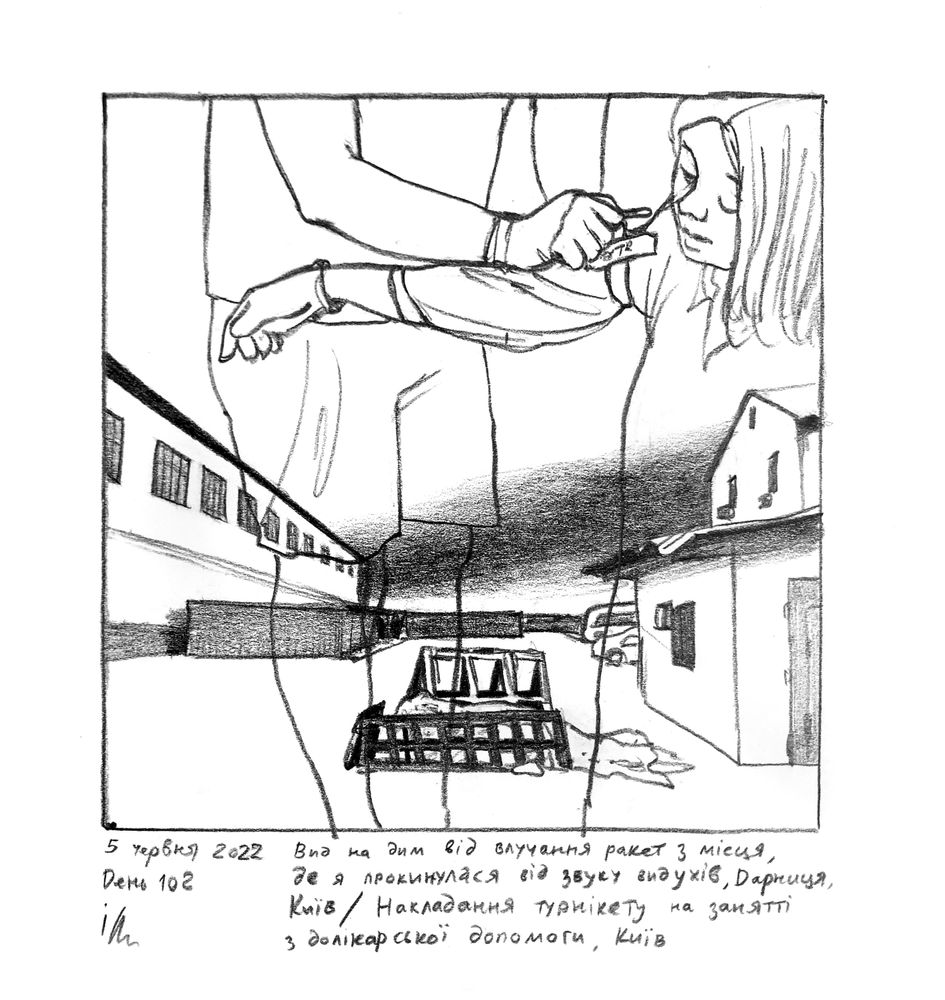 5 червня 2022
День 102
Вид на дим від влучання ракет з місця,
де я прокинулася від звуку вибухів, Дарниця,
Київ / Накладання турнікету на занятті
з долікарської допомоги, Київ